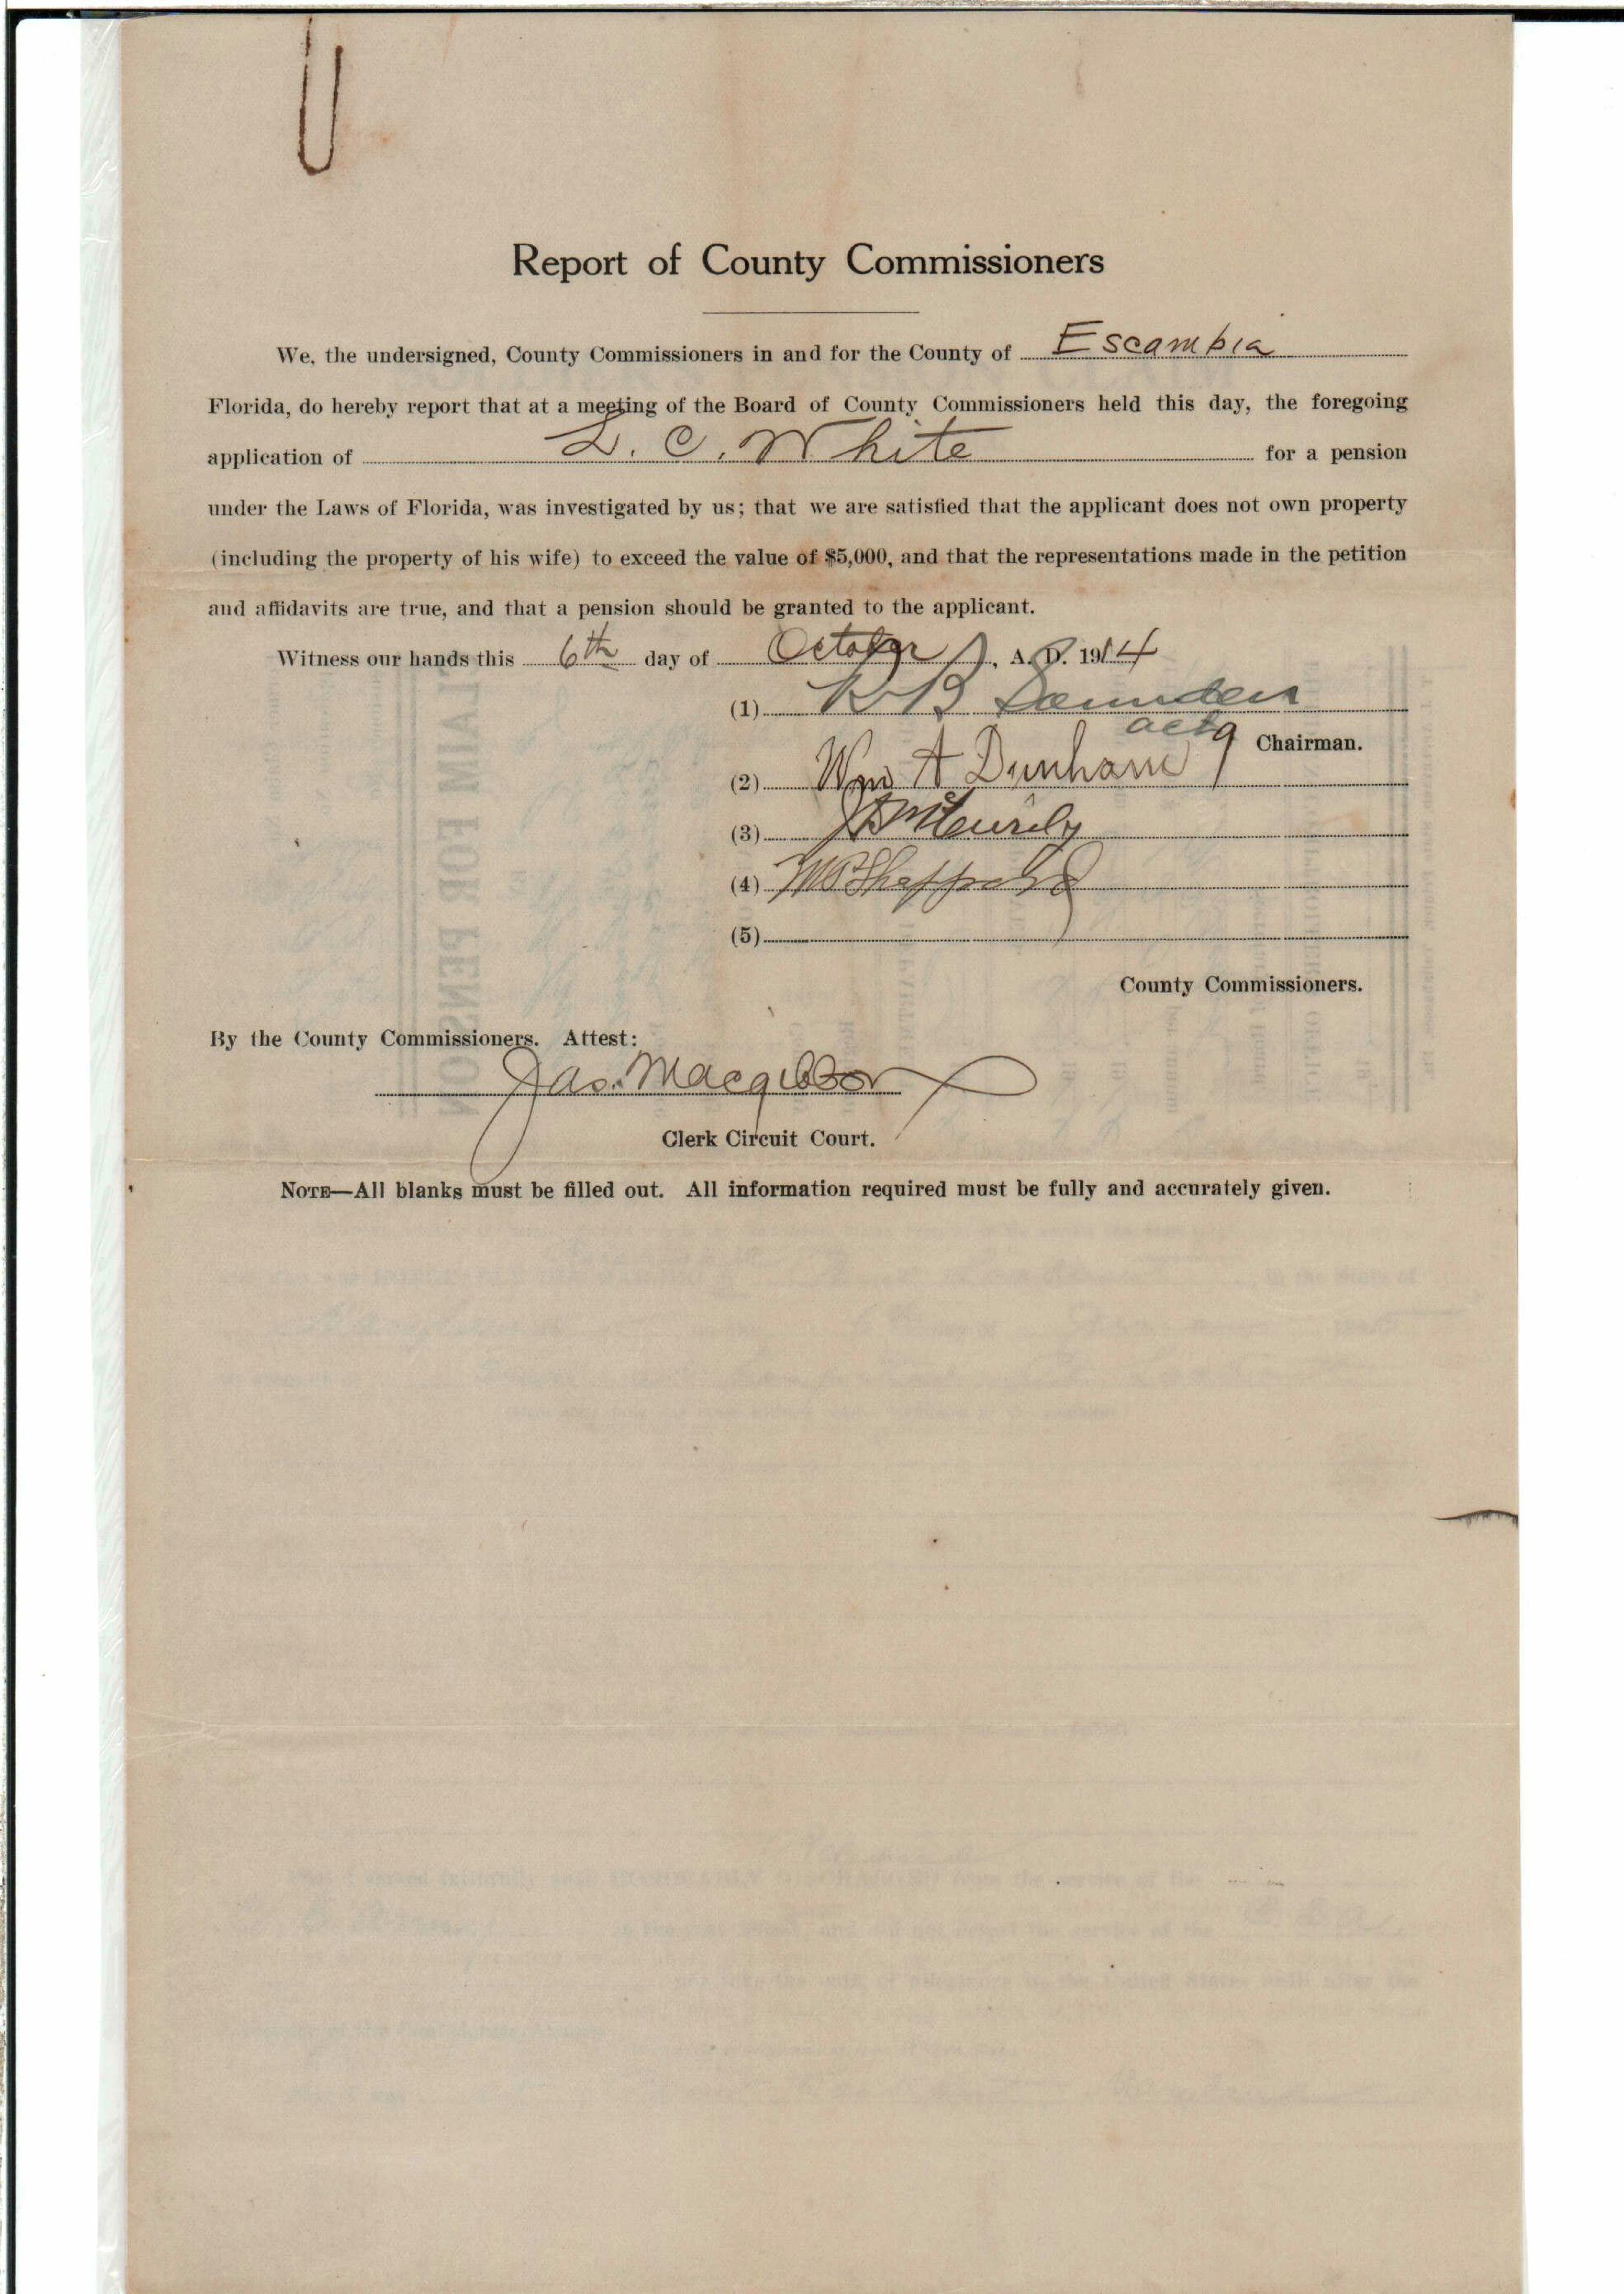 Report of County Commissioners
We, the undersigned, County Commissioners in and for the County of Escambia
Florida, do hereby report that at a meeting of the Board of County Commissioners held this day, the foregoing
application of L. C. White for a pension
under the Laws of Florida, was investigated by us; that we are satisfied that the applicant does not own property
(including the property of his wife) to exceed the value of $5,000, and that the representations made in the petition
and affidavits are true, and that a pension should be granted to the applicant.
Witness our hands this 6th day of October, A. D. 1914
(1)
actg Chairman.
(2) Wm A Dunham
(3)
(4)
(5)
County Commissioners.
By the County Commissioners. Attest:
Jas. Macgibbon
Clerk Circuit Court.
NOTE—All blanks must be filled out. All information required must be fully and accurately given.